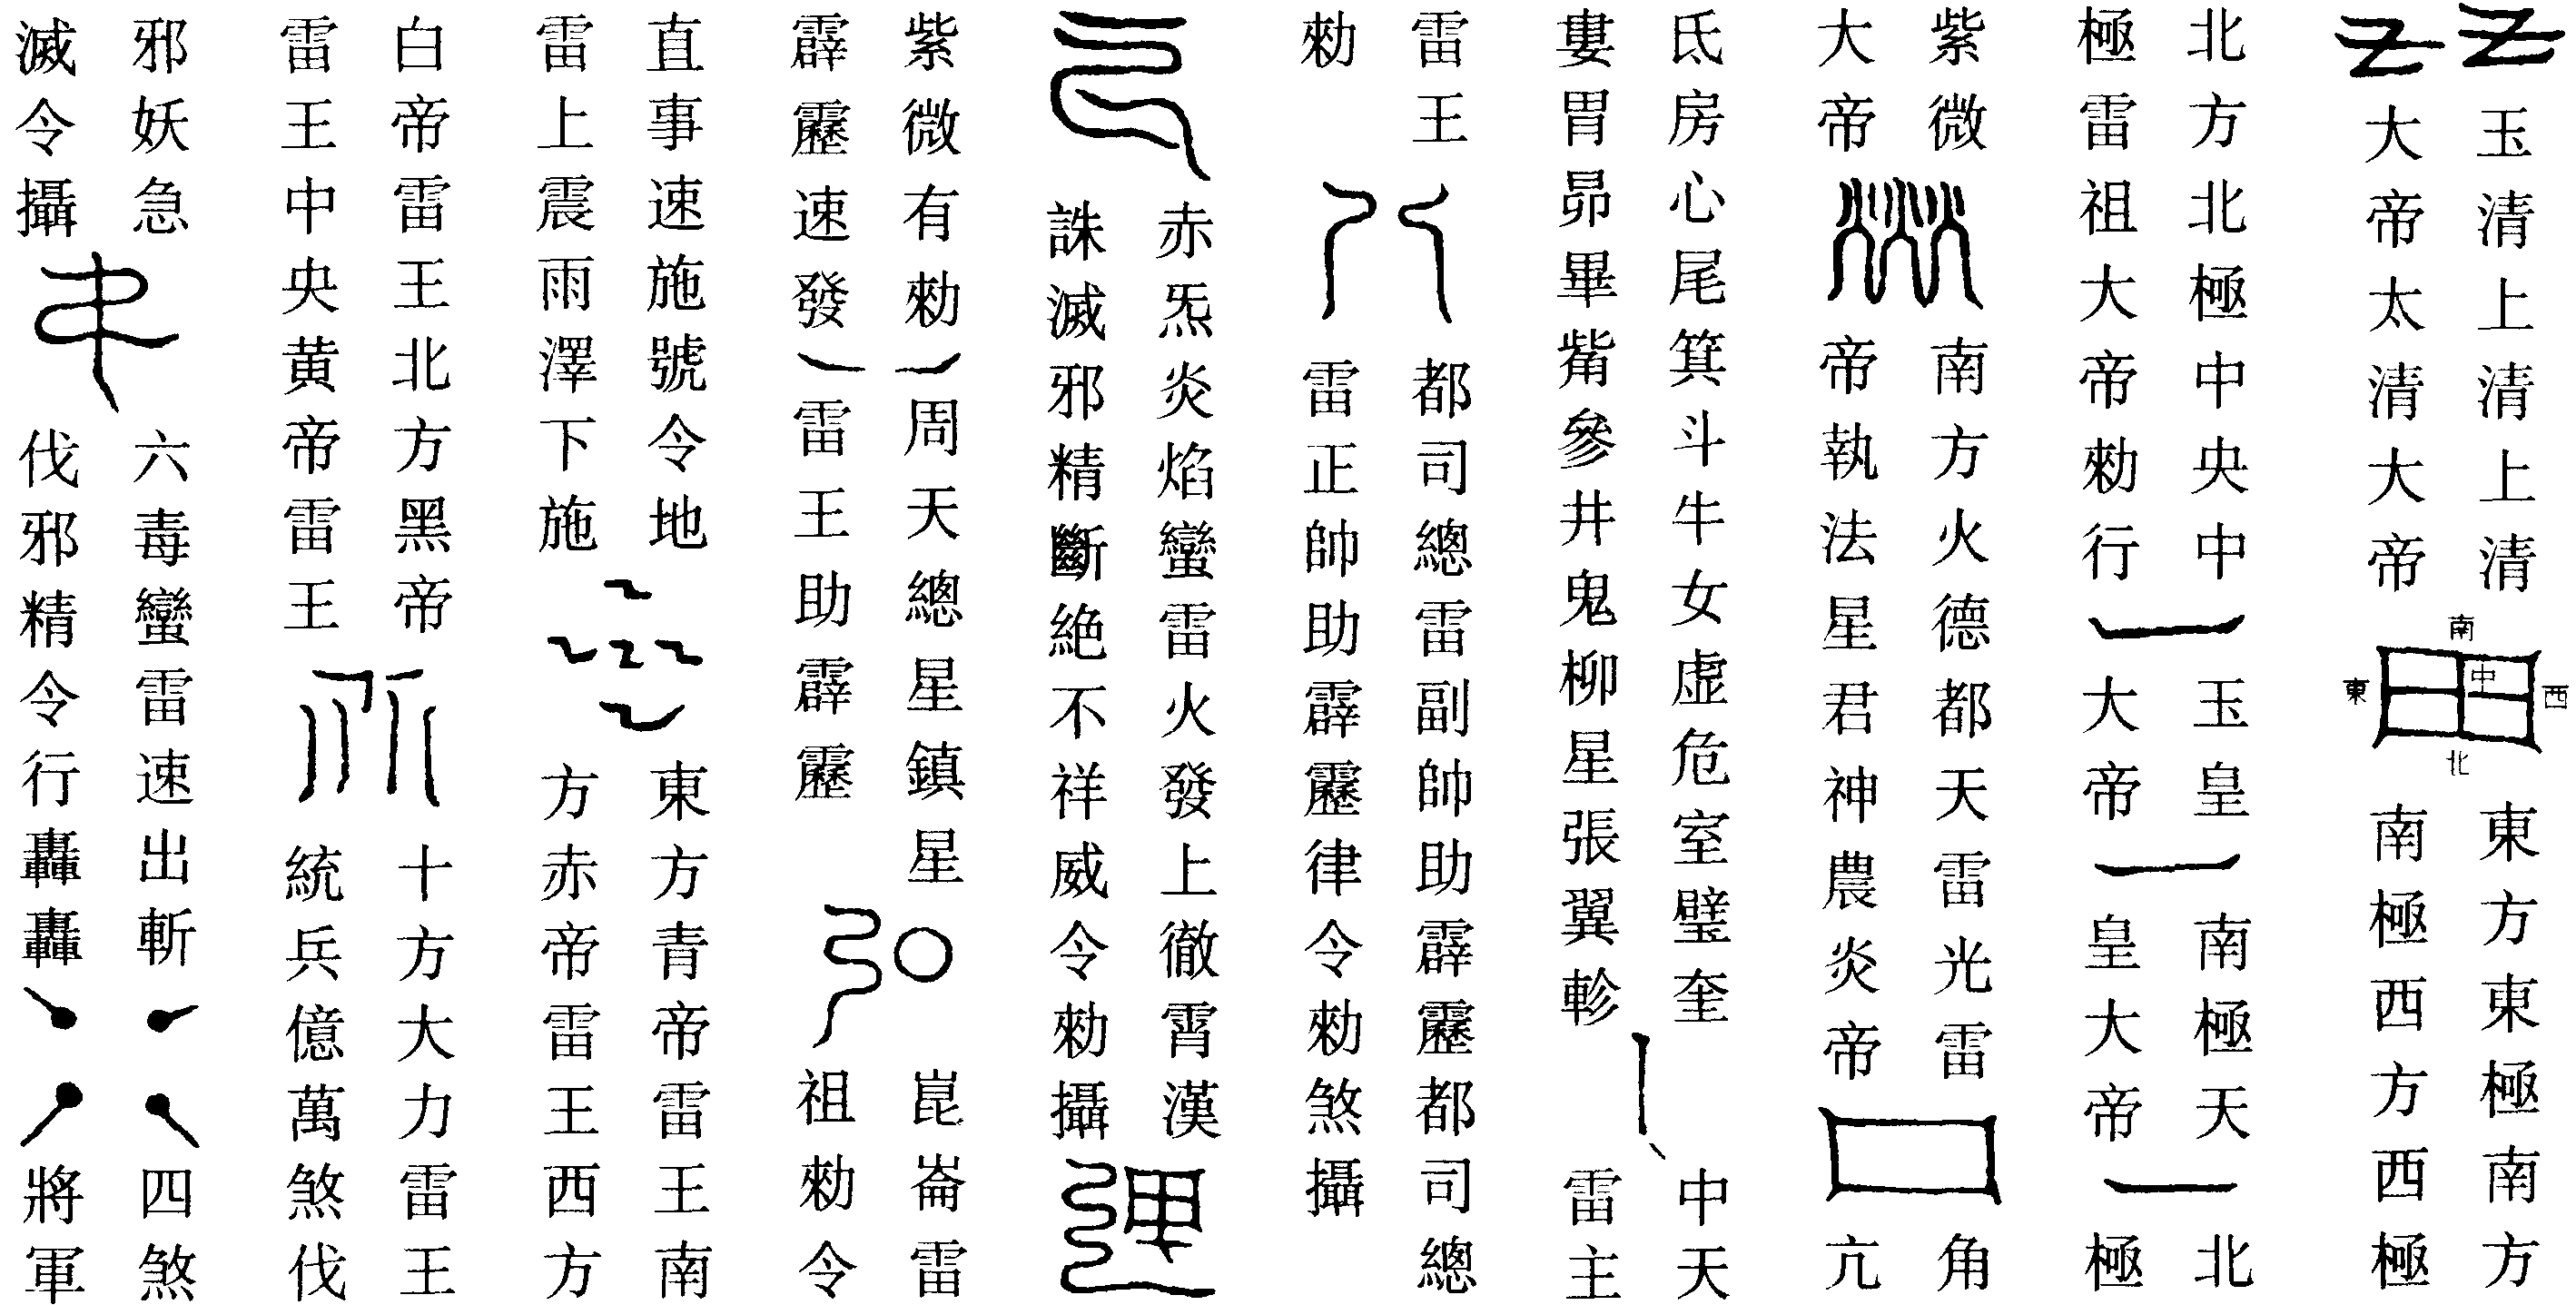 玉清上清上清
大帝太清大帝
南
東
中
西
北
東方東極南方
南極西方西極
北方北極中央中
極雷祖大帝勑行
玉皇
大帝
南極天
皇大帝
北
極
紫微
大帝
南方火德都天雷光雷
帝執法星君神農炎帝
角
亢
氐房心尾箕斗牛女虛危室璧奎
婁胃昴畢觜參井鬼柳星張翼軫
中天
雷主
雷王
勑
都司總雷副帥助霹靂都司總
雷正帥助霹靂律令勑煞攝
赤炁炎焰蠻雷火發上徹霄漢
誅滅邪精斷絕不祥威令勑攝
紫微有勑
霹靂速發
周天總星鎮星
雷王助霹靂
崑崙雷
祖勑令
直事速施號令地
雷上震雨澤下施
東方青帝雷王南
方赤帝雷王西方
白帝雷王北方黑帝
雷王中央黃帝雷王
十方大力雷王
統兵億萬煞伐
邪妖急
滅令攝
六毒蠻雷速出斬
伐邪精令行轟轟
四煞
將軍